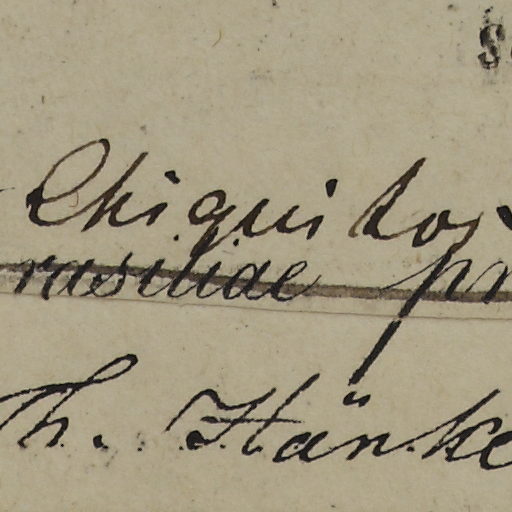 Chiquitos
rasiliae pr
Th. Hänke